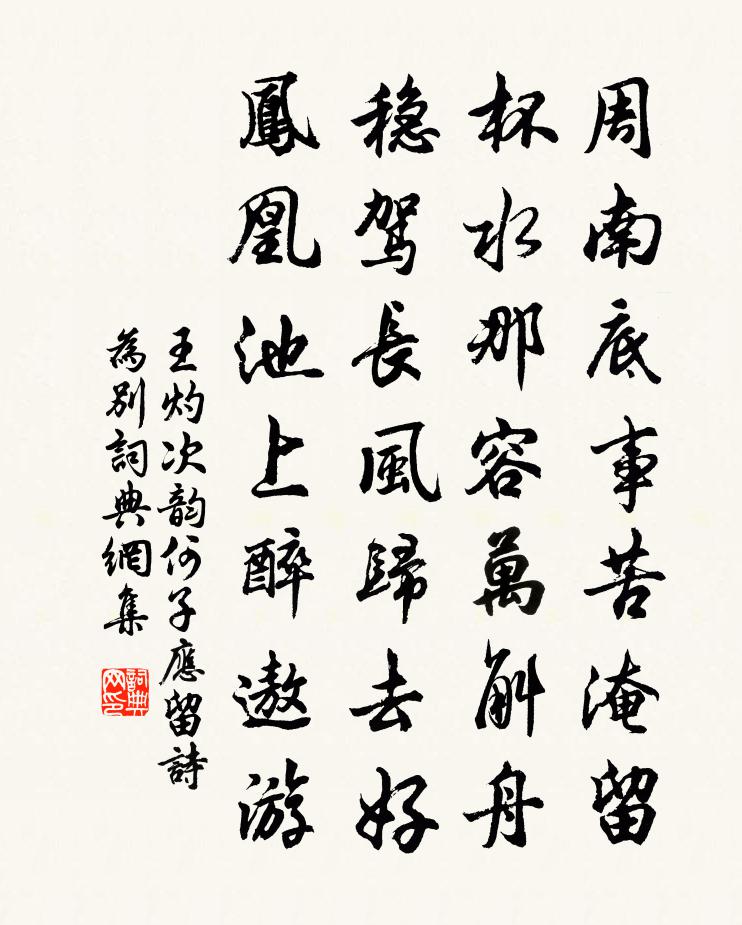 周南底事苦淹留
杯水那容萬斛舟
穏駕長風歸去好
鳳凰池上醉遨游
王灼次韵何子應留詩
為別詞典網集
詞典网印